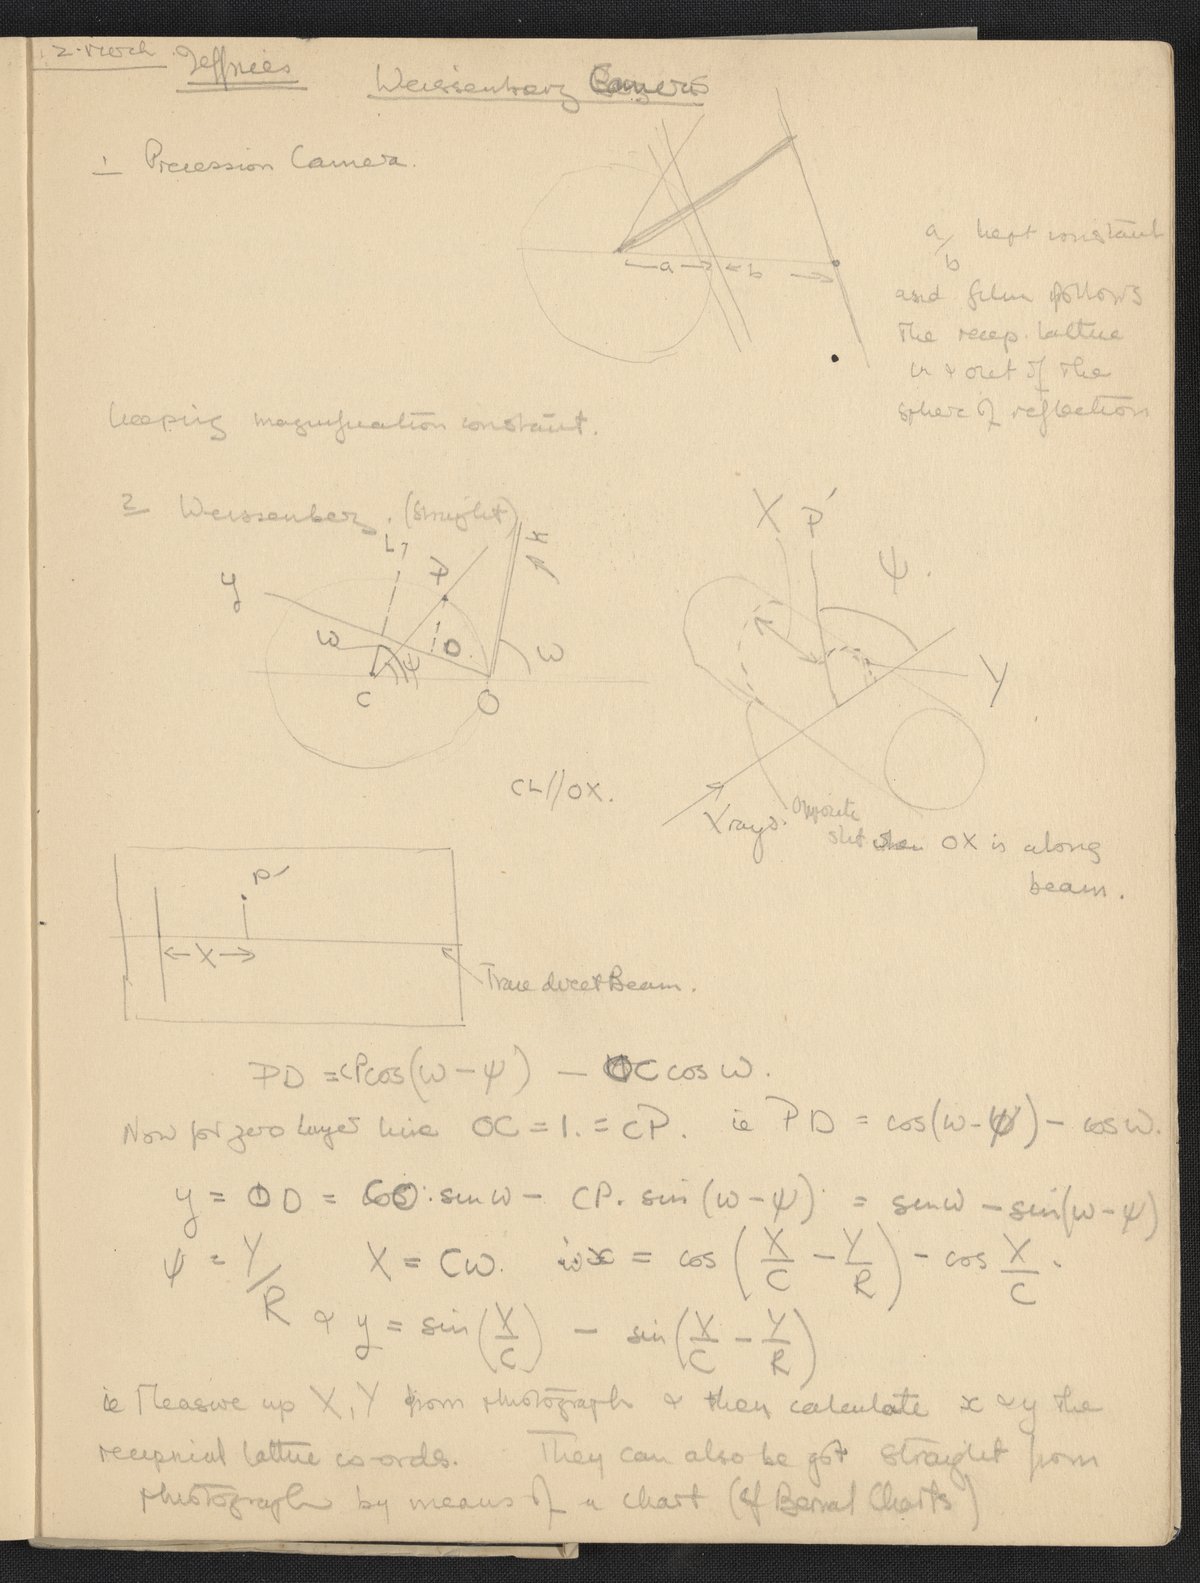 2. March Jeffries Weissenberg Camera
1 Precession Camera.
a/b kept constant
and film follows
the recip. lattice
in & out of the
sphere of reflection
a b
keeping magnification constant.
2 Weissenberg. (straight)
L? P x
y ω D ψ ω
C O
X P' ψ.
Y
CL//OX.
Xrays. Opposite
slit when OX is along
beam.
P'
X
Trace direct Beam.
PD = CP cos(ω - ψ) - OC cos ω.
Now for zero layer line OC = 1. = CP. ie PD = cos(ω - ψ) - cos ω.
y = OD = CO. sin ω - CP. sin (ω - ψ) = sin ω - sin(ω - ψ)
ψ = Y/R X = Cω. x = cos (X/C - Y/R) - cos X/C.
& y = sin (X/C) - sin (X/C - Y/R)
ie Measure up X, Y from photograph & then calculate x & y the
recipricial lattice co-ords. They can also be got straight from
photograph by means of a chart (cf Bernal Charts)